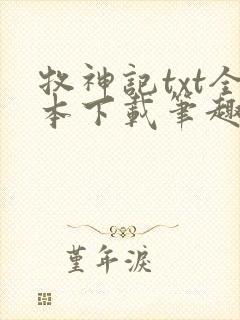 牧神記txt全
本下載筆趣
堇年淚